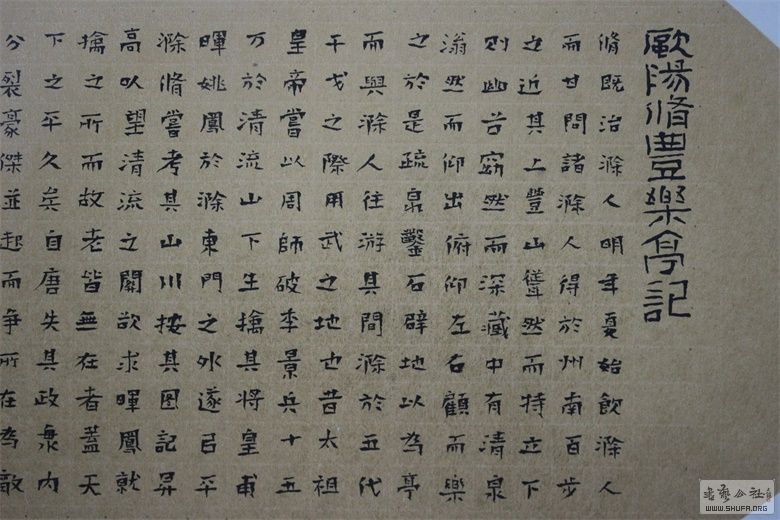 歐陽脩豐樂亭記
脩既治滁人明年夏始飲滁人
而甘問諸滁人得於州南百步
之近其上豐山聳然而特立下
則幽谷窈然而深藏中有清泉
滃然而仰出俯仰左右顧而樂
之於是疏泉鑿石辟地以為亭
而與滁人往游其間滁於五代
干戈之際用武之地也昔太祖
皇帝嘗以周師破李景兵十五
万於清流山下生擒其將皇甫
暉姚鳳於滁東門之外遂以平
滁脩嘗考其山川按其圖記昇
高以望清流之關欲求暉鳳就
擒之所而故老皆無在者蓋天
下之平久矣自唐失其政海内
分裂豪傑並起而爭所在為敵
WWW.SHUFA.ORG